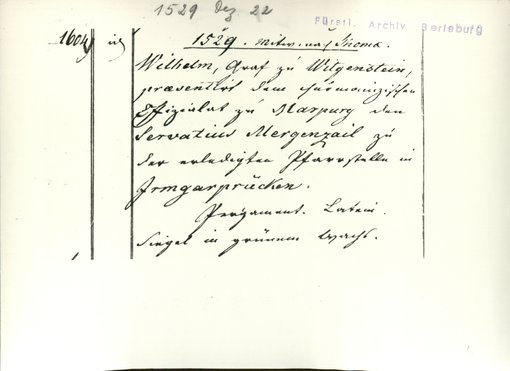 1529 Dez 22
Fürstl. Archiv Berleburg
1604
1529. Mitw. nach Thomä.
Wilhelm, Graf zu Witgenstein,
præsentirt dem churmainzischen
Offizialat zu Marpurg den
Servatius Mergenzail zu
der erledigten Pfarrstelle in
Irmgarprücken.
Pergament. Latein.
Siegel in grünem Wachs.